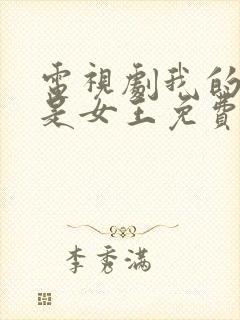 電視劇我的
是女王免費
李秀滿